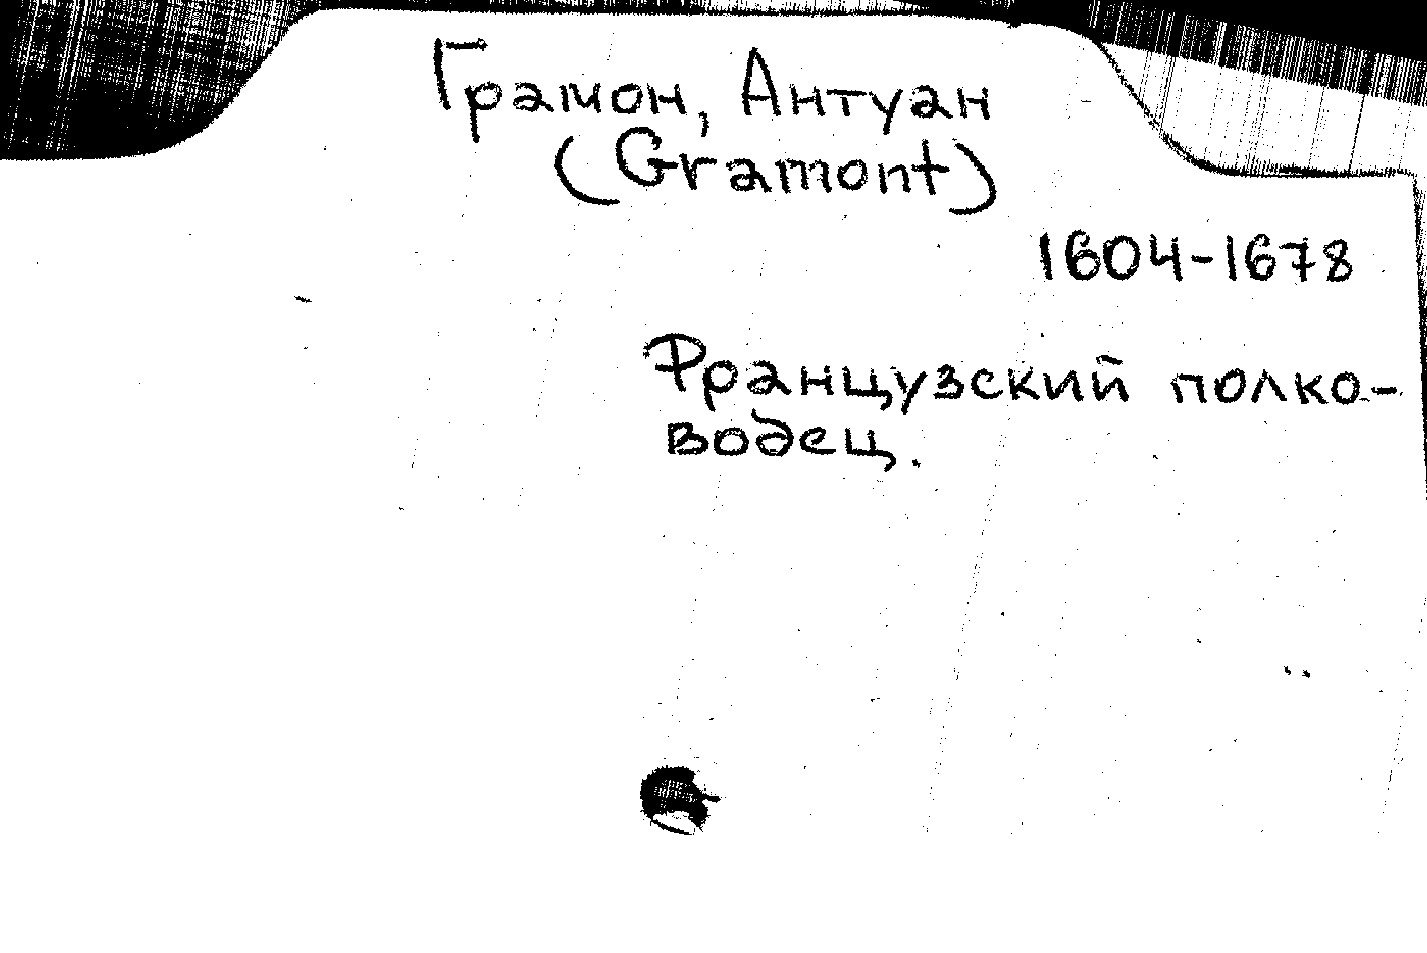 Грамон, Антуан
(Gramont)
1604-1678
Французский полко-
водец.